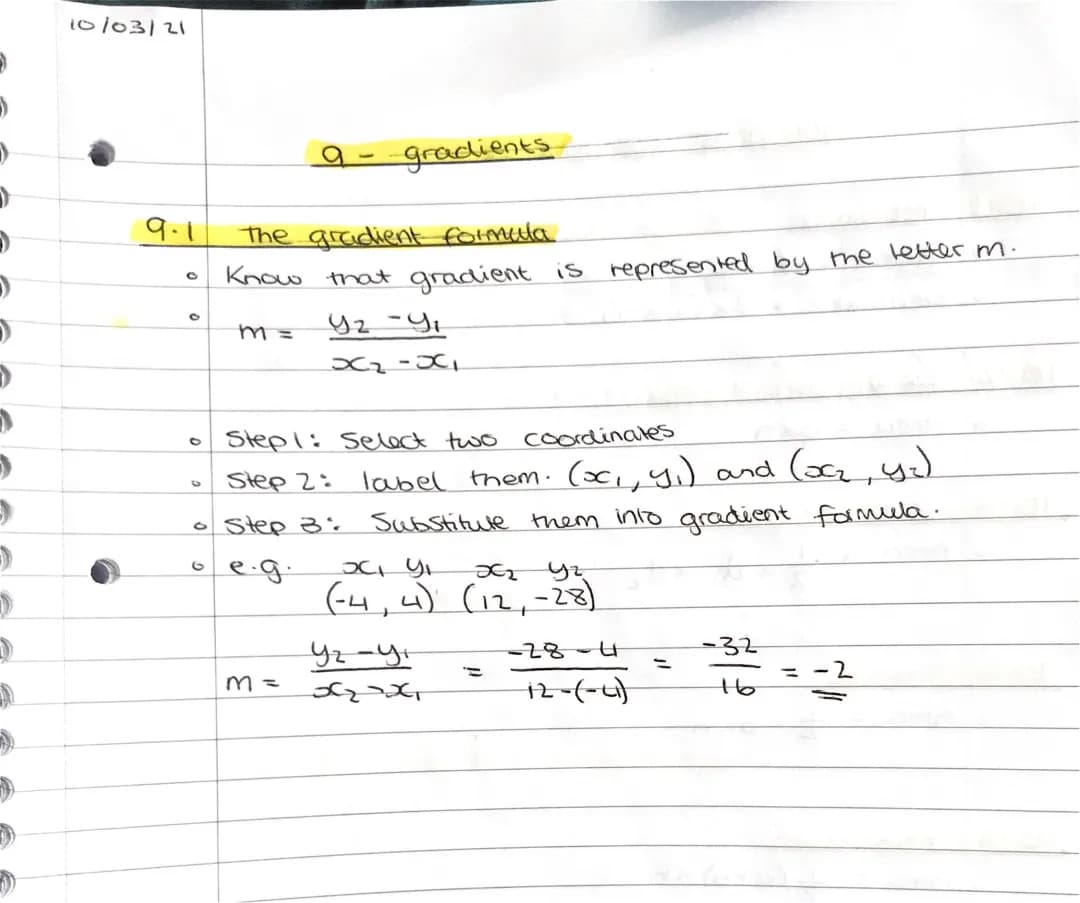 10/03/21
9 - gradients
9.1 The gradient formula
○ Know that gradient is represented by the letter m.
○ m = y₂ - y₁
x₂ - x₁
○ Step 1: Select two coordinates
○ Step 2: label them. (x₁, y₁) and (x₂, y₂)
○ Step 3: Substitute them into gradient formula.
○ e.g. x₁ y₁ x₂ y₂
(-4, 4) (12, -28)
m = y₂ - y₁ = -28 - 4 = -32 = -2
x₂ - x₁ 12 - (-4) 16